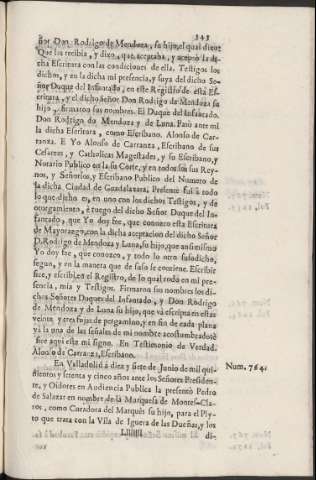 343
ñor Don Rodrigo de Mendoza, su hijo, el qual dixo:
Que las recibia, y dixo, que aceptaba, y aceptò la di-
cha Escritura con las condiciones de ella. Testigos los
dichos, y en la dicha mi presencia, y suya del dicho Se-
ñor Duque del Infantado, en este Registro de esta Es-
critura, y el dicho Señor Don Rodrigo de Mendoza su
hijo, firmaron sus nombres. El Duque del Infantado.
Don Rodrigo de Mendoza y de Luna. Pasò ante mi
la dicha Escritura, como Escribano. Alonso de Car-
ranza. E Yo Alonso de Carranza, Escribano de sus
Cesareas, y Catholicas Magestades, y su Escribano, y
Notario Publico en la su Corte, y en todos sus Rey-
nos, y Señorios, y Escribano Publico del Numero de
la dicha Ciudad de Guadalaxara, Presente fui à todo
lo que dicho es, en uno con los dichos Testigos, y de
otorgamiento, è ruego del dicho Señor Duque del In-
fantado, que Yo doy fee, que conozco esta Escritura
de Mayorazgo, con la dicha aceptacion del dicho Señor
D. Rodrigo de Mendoza y Luna, su hijo, que ansimismo
Yo doy fee, que conozco, y todo lo otro susodicho,
segun, y en la manera que de suso se contiene. Escribir
fice, y escribi en el Registro, de lo qual todo en mi pre-
sencia, mia y Testigos. Firmaron sus nombres los di-
chos Señores Duques del Infantado, y Don Rodrigo
de Mendoza y de Luna su hijo, que và escripta en estas
veinte y tres fojas de pergamino, y en fin de cada plana
và la una de las señales de mi nombre acostumbrado; è
fice aqui este mi signo. En Testimonio de Verdad.
Alonso de Carranza, Escribano.
En Valladolid à diez y siete de Junio de mil qui- Num. 764.
nientos y setenta y cinco años ante los Señores Presiden-
te, y Oidores en Audiencia Publica la presentò Pedro
de Salazar en nombre de la Marquesa de Montes-Cla-
ros, como Curadora del Marquès su hijo, para el Pley-
to que trata con la Villa de Iguera de las Dueñas, y los
di-